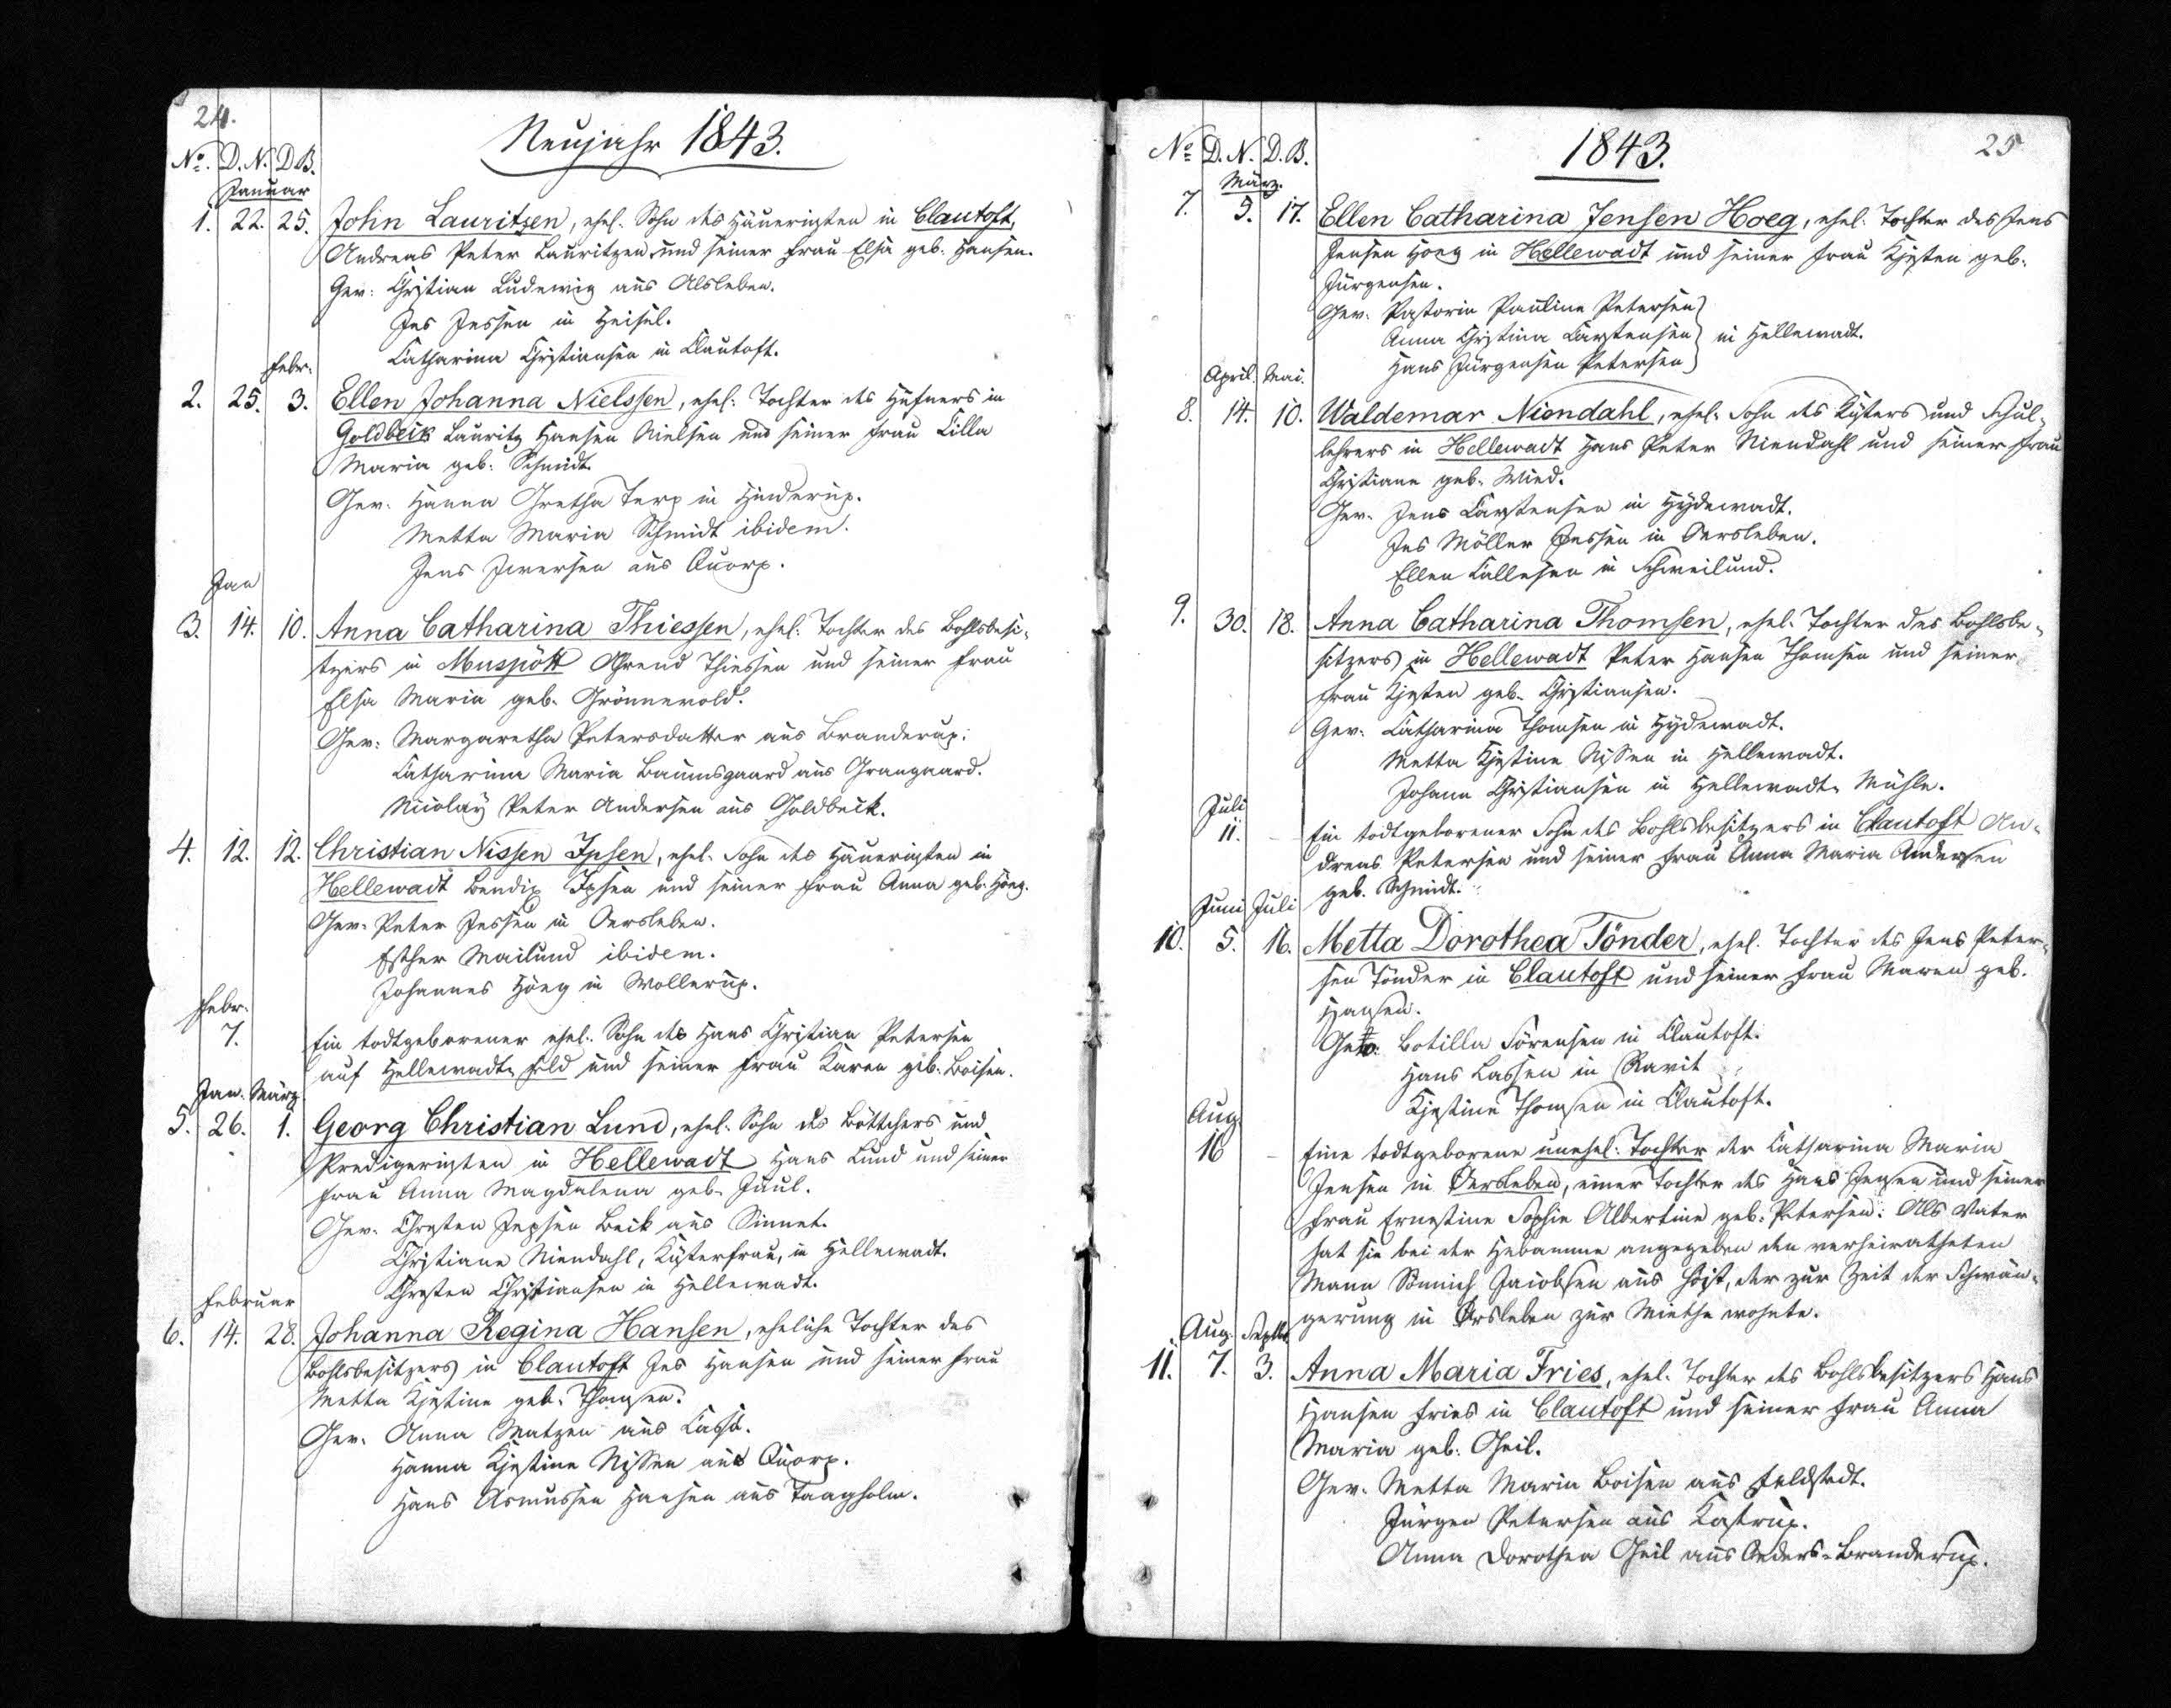 24.
Neujahr 1843.
No. D. N. D B.
Januar
1. 22. 25. John Lauritzen, ehel. Sohn des Häuerigsten in Clautoft,
Andreas Peter Lauritzen und seiner Frau Elsa geb. Hansen.
Gev: Christian Ludewig aus Alsleben.
Jes Jessen in Heisel.
Catharina Christiansen in Clautoft.
Febr.
2. 25. 3. Ellen Johanna Nielsen, ehel. Tochter des Hufners in
Goldbeck Lauritz Hansen Nielsen und seiner Frau Cilla
Maria geb. Schmidt
Gev. Hanna Gretha Terp in Hinderup.
Metta Maria Schmidt ibidem.
Jens Iwersen aus Quorp.
Jan
3. 14. 10. Anna Catharina Thiessen, ehel. Tochter des Bohlsbesi-
tzers in Muspött Ahrend Thiessen und seiner Frau
Elsa Maria geb. Grönnevold.
Gev: Margaretha Petersdatter aus Branderup.
Catharina Maria Baumsgaard aus Grangaard.
Nicolay Peter Andersen aus Goldbeck.
4. 12. 12. Christian Nissen Ipsen, ehel. Sohn des Häuerigsten in
Hellewadt Bendix Ipsen und seiner Frau Anna geb. Höeg.
Gev. Peter Jessen in Oersleben.
Esther Mailund ibidem.
Johannes Höeg in Wollerup.
Febr.
7. Ein todtgeborener ehel. Sohn des Hans Christian Petersen
auf Hellewadt-Feld und seiner Frau Karen geb. Boisen.
Jan. März
5. 26. 1. Georg Christian Lund, ehel. Sohn des Böttchers und
Predigerigsten in Hellewadt Hans Lund und seiner
Frau Anna Magdalena geb. Juul.
Gev. Chresten Jepsen Beck aus Sinnet.
Christiane Niendahl, Küsterfrau, in Hellewadt.
Chresten Christiansen in Hellewadt.
Februar
6. 14. 28. Johanna Regina Hansen, eheliche Tochter des
Bohlsbesitzers in Clautoft Jes Hansen und seiner Frau
Metta Kjestine geb. Thomsen.
Gev. Anna Matzen aus Casse.
Hanna Kjestine Nissen aus Quorp.
Hans Asmussen Hansen aus Taagholm.
25
1843.
No D. N. D. B.
März.
7. 5. 17. Ellen Catharina Jensen Hoeg, ehel. Tochter des Jens
Jensen Hoeg in Hellewadt und seiner Frau Kjesten geb.
Jürgensen.
Gev. Pastorin Pauline Petersen
Anna Christina Carstensen in Hellewadt.
Hans Jürgensen Petersen
April. Mai.
8. 14. 10. Waldemar Niendahl, ehel. Sohn des Küsters und Schul-
lehrers in Hellewadt Hans Peter Niendahl und seiner Frau
Christiane geb. Wied.
Gev. Jens Carstensen in Hydewadt.
Jes Möller Jessen in Oersleben.
Ellen Callesen in Schweilund.
9. 30. 18. Anna Catharina Thomsen, ehel. Tochter des Bohlsbe-
sitzers in Hellewadt Peter Hansen Thomsen und seiner
Frau Kjesten geb. Christiansen.
Gev. Catharina Thomsen in Hydewadt.
Metta Kjestine Nissen in Hellewadt.
Johann Christiansen in Hellewadt-Mühle.
Juli
11. – Ein todtgeborener Sohn des Bohlsbesitzers in Clautoft An-
dreas Petersen und seiner Frau Anna Maria Andersen
geb. Schmidt.
Juni Juli
10. 5. 16. Metta Dorothea Tönder, ehel. Tochter des Jens Peter-
sen Tönder in Clautoft und seiner Frau Maren geb.
Hansen.
Gev: Botilla Sörensen in Clautoft.
Hans Lassen in Ravit
Kjestine Thomsen in Clautoft.
Aug.
16 – Eine todtgeborene unehel. Tochter der Catharina Maria
Jensen in Oersleben, einer Tochter des Hans Jensen und seiner
Frau Ernestine Sophie Albertine geb. Petersen. Als Vater
hat sie bei der Hebamme angegeben den verheiratheten
Mann Sönnich Jacobsen aus Hojst, der zur Zeit der Schwän-
gerung in Orsleben zur Miethe wohnte.
Aug. Septbr.
11. 7. 3. Anna Maria Fries, ehel. Tochter des Bohlsbesitzers Hans
Hansen Fries in Clautoft und seiner Frau Anna
Maria geb. Gheil.
Gev. Metta Maria Boisen aus Feldstedt.
Jürgen Petersen aus Kastrup.
Anna Dorothea Gheil aus Oeders-Branderup.